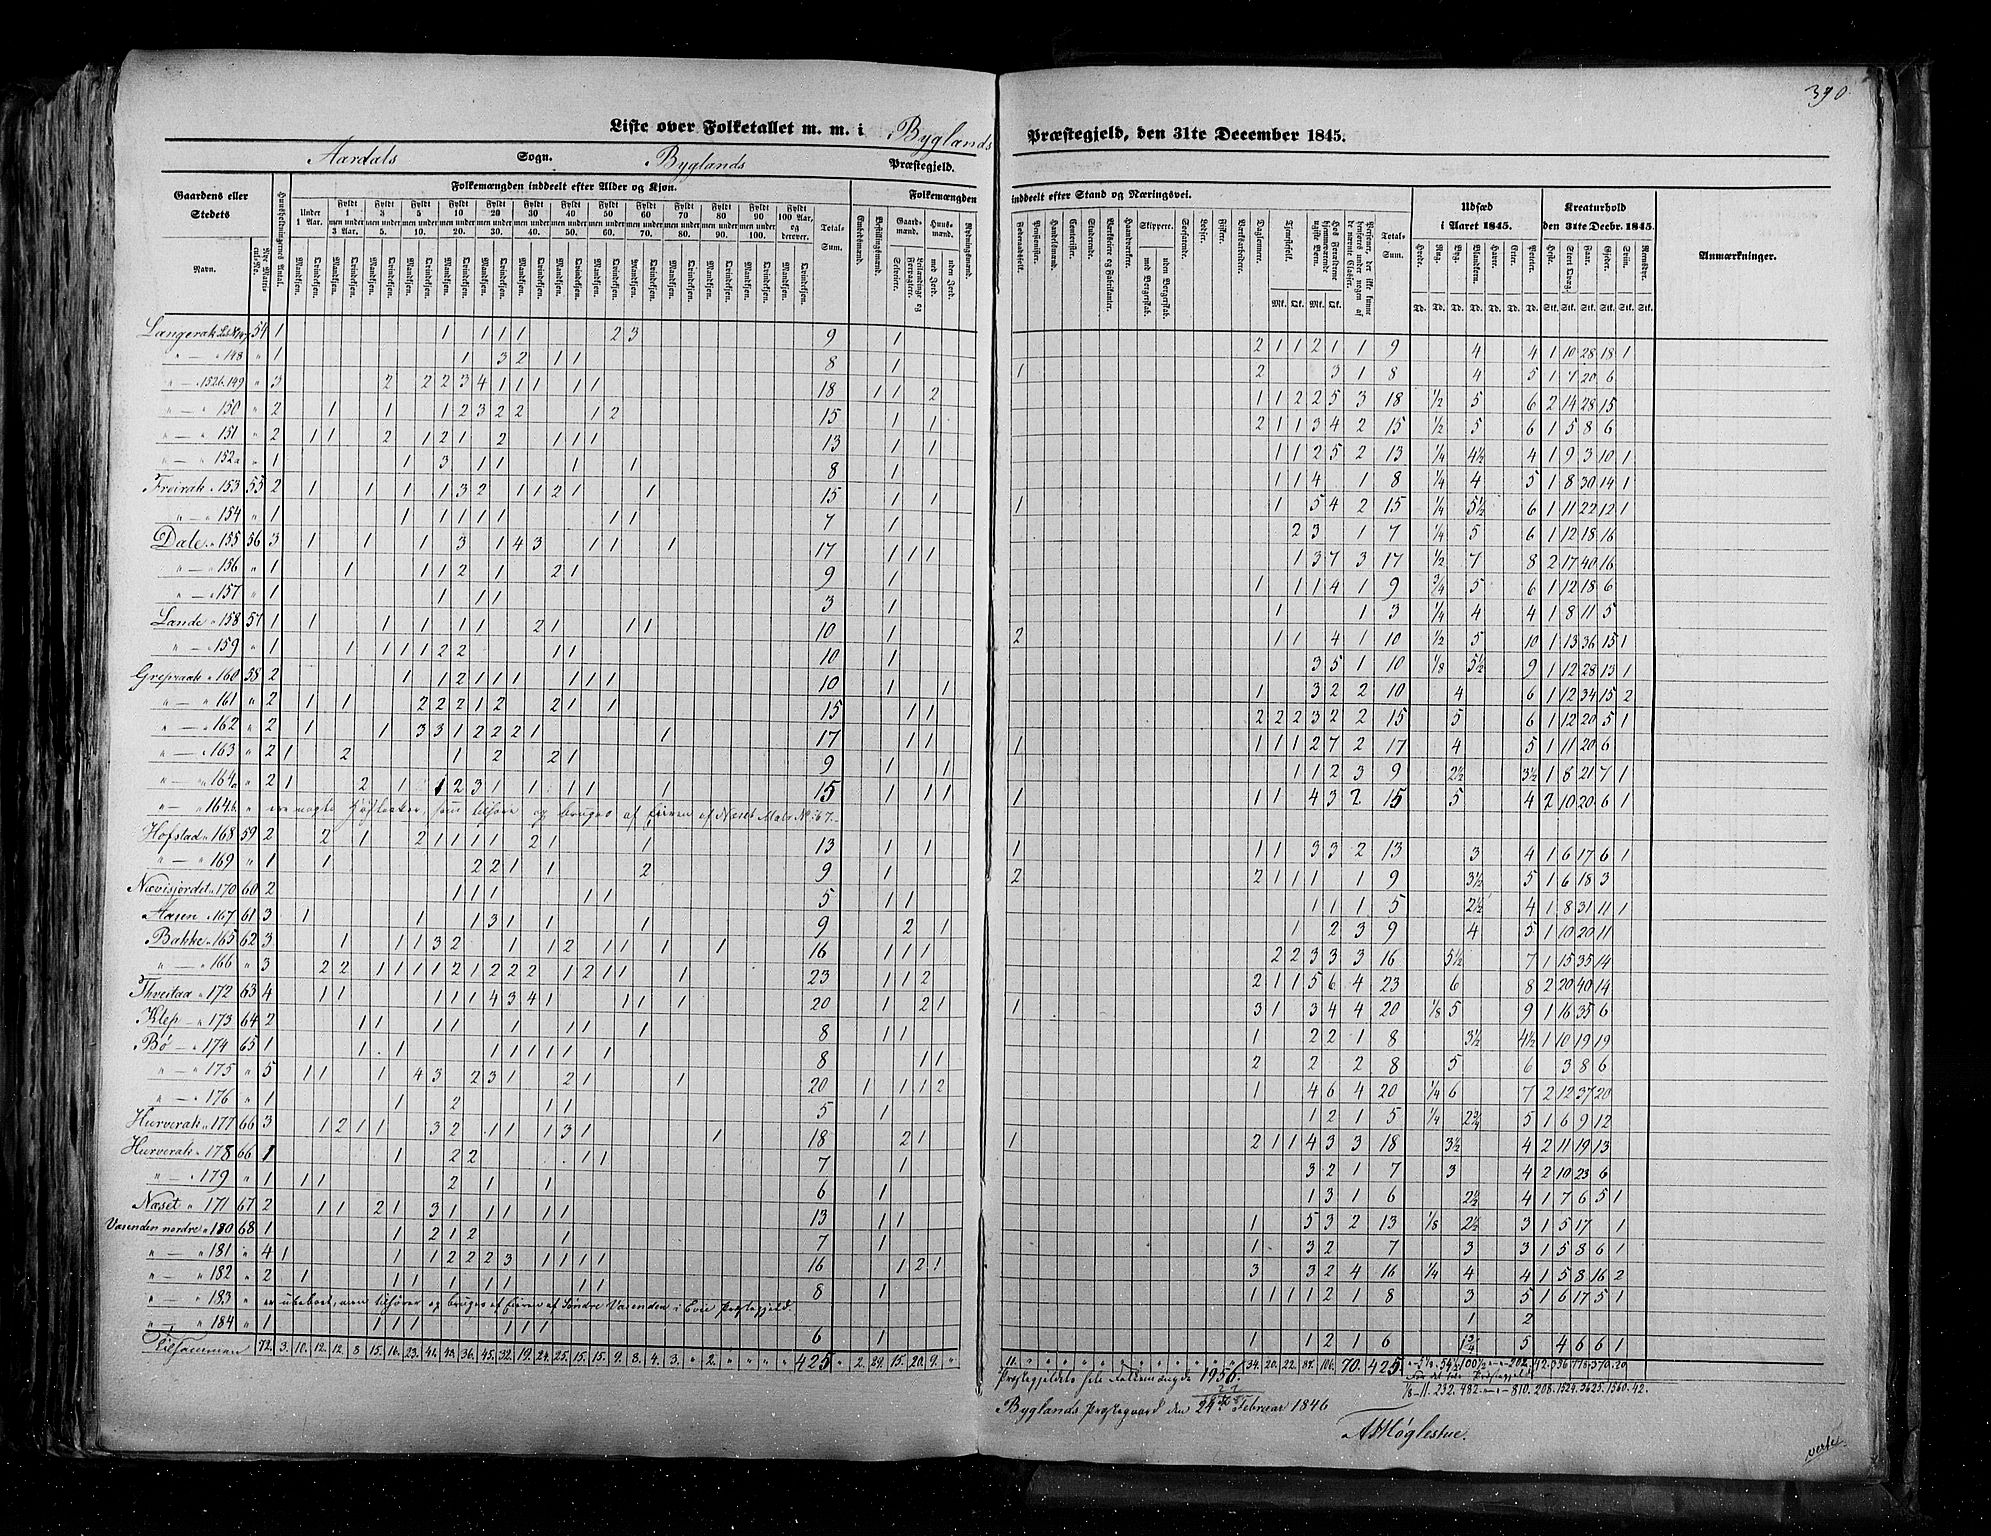 390.
Liste over Folketallet m. m. i Byglands Præstegjeld, den 31te December 1845.
Aardals Sogn. Byglands Præstegjeld.
Gaardens eller Stedets Navn.
Nye Matricul-No.
Huusholdningernes Antal.
Folkemængden inddeelt efter Alder og Kjøn.
Under 1 Aar.
Fyldt 1 men under 3 Aar.
Fyldt 3 men under 5.
Fyldt 5 men under 10.
Fyldt 10 men under 20.
Fyldt 20 men under 30.
Fyldt 30 men under 40.
Fyldt 40 men under 50.
Fyldt 50 men under 60.
Fyldt 60 men under 70.
Fyldt 70 men under 80.
Fyldt 80 men under 90.
Fyldt 90 men under 100.
Fyldt 100 Aar, og derover.
Mandkjøn. Qvindekjøn.
Total-Sum.
Folkemængden inddeelt efter Stand og Næringsvei.
Embedsmænd.
Bestillingsmænd.
Gaardmænd.
Selveiere.
Leilændinge og Forpagtere.
Huusmænd.
med Jord.
uden Jord.
Rydningsmænd.
Føderaadsfolk.
Pensionister.
Handelsmænd.
Contorister.
Studerende.
Værkeiere og Fabrikanter.
Haandværkere.
Skippere.
med Borgerskab.
uden Borgerskab.
Søefarende.
Lodser.
Fiskere.
Værksarbeidere.
Dagleiere.
Tjenestefolk.
Mk. Qk.
Hos Forældrene hjemmeværende ugifte Børn.
Mk. Qk.
Personer, der ikke kunne henføres under nogen af de nævnte Classer.
Total-Sum.
Udsæd i Aaret 1845.
Hvede. Rug. Byg. Blandkorn. Havre. Erter. Poteter.
Td. Td. Td. Td. Td. Td. Td.
Kreaturhold den 31te Decbr. 1845.
Heste. Stort Qvæg. Faar. Gjeder. Sviin. Rensdyr.
Stk. Stk. Stk. Stk. Stk. Stk.
Anmærkninger.
Langerak 147 54 1 1 1 1 1 2 3 9 1 2 1 1 2 1 1 9 4 4 1 10 28 18 1
" — " 148 " 1 1 3 2 1 1 8 1 1 2 3 1 8 4 5 1 7 20 6
" — 149 " 3 2 2 2 3 4 1 1 1 1 1 18 1 1 2 1 1 2 2 5 3 18 1/2 5 6 2 14 28 15
" — " 150 " 2 1 1 1 2 3 2 2 1 2 15 1 1 2 1 1 3 4 2 15 1/2 5 6 1 5 8 6
" — " 151 " 2 1 1 2 1 2 1 2 1 1 1 13 1 1 1 1 2 5 2 13 1/4 4 1/2 4 1 9 3 10 1
" — " 152a " 1 1 3 1 1 1 1 8 1 1 1 4 1 8 1/4 4 5 1 8 30 14 1
Freirak " 153 55 2 1 1 1 1 3 2 1 1 2 1 1 15 1 1 1 1 5 4 2 15 1/4 5 1/2 6 1 11 22 12 1
" — " 154 " 1 1 1 1 1 1 1 1 7 1 2 3 1 7 1/4 5 6 1 12 18 16
Dale " 155 56 3 1 1 1 3 1 4 3 1 1 1 17 1 1 1 1 3 7 3 17 1/2 7 8 2 17 40 16
" — " 156 " 1 1 1 1 2 1 2 1 9 1 1 1 1 4 1 9 3/4 5 6 1 12 18 6
" — " 157 " 1 1 1 1 3 1 1 1 3 1/4 4 4 1 8 11 5
Lande " 158 57 1 1 1 1 1 1 2 1 1 1 10 1 2 1 1 4 1 10 1/2 5 10 1 13 36 15 1
" — " 159 " 1 1 1 1 1 2 2 1 1 10 1 3 5 1 10 1/8 5 1/2 9 1 12 28 13 1
Grepraak " 160 58 2 1 1 2 1 1 1 1 1 1 10 1 1 1 3 2 2 10 4 6 1 12 34 15 2
" — " 161 " 2 1 1 2 2 2 1 2 2 1 1 15 1 1 2 2 2 3 2 2 15 5 6 1 12 20 5 1
" — " 162 " 2 1 1 3 3 1 2 2 2 1 1 17 1 1 1 1 1 1 2 7 2 17 4 5 1 11 20 6
" — " 163 " 2 1 2 1 2 2 1 9 1 1 1 1 2 3 9 2 1/2 3 1/2 1 8 21 7 1
" — " 164a " 2 1 2 1 1 2 3 1 1 1 1 15 1 1 1 1 1 1 4 3 2 15 5 4 2 10 20 6 1
" — " 164b " ere nogle som tilhøre og bruges af Eieren af Næset Matr. No. 67.
Hofstad " 168 59 2 2 1 2 1 1 1 1 2 1 1 13 1 1 1 1 1 3 3 2 13 3 4 1 6 17 6 1
" — " 169 " 1 1 2 2 1 1 2 9 1 2 2 1 1 1 1 9 3 1/2 5 1 6 18 3
Nævisjordet " 170 60 2 1 1 1 1 1 5 1 1 1 1 1 5 2 1/2 4 1 8 31 11 1
Aasen " 167 61 3 1 1 1 3 1 1 1 9 2 1 1 2 3 9 4 5 1 10 20 11
Bakke " 165 62 3 1 1 1 3 2 1 1 2 1 1 1 1 16 1 1 1 2 2 3 3 3 16 5 1/2 7 1 15 35 14
" — " 166 " 3 2 2 1 1 1 1 2 1 2 2 2 1 2 1 1 1 23 1 1 2 2 1 1 5 6 4 23 6 8 2 20 40 14
Thveitaa " 172 63 4 1 1 1 1 1 4 3 4 1 1 1 1 20 1 2 1 1 3 1 3 4 4 20 1/8 5 9 1 16 35 6
Klep — " 173 64 2 1 1 1 1 1 1 1 1 8 1 1 1 2 2 1 8 3 1/2 4 1/2 1 10 19 19
Bø — " 174 65 1 1 1 1 1 1 1 1 1 8 1 1 2 2 2 8 5 6 3 8 6
" — " 175 " 5 1 1 1 4 3 2 3 1 2 1 1 20 1 1 1 2 1 4 6 4 20 1/4 6 7 2 12 37 20
" — " 176 " 1 1 2 1 1 5 1 1 2 1 5 1/4 2 3/4 5 1 6 9 12
Hurverak " 177 66 3 1 2 1 1 3 2 1 1 1 3 1 1 18 2 1 1 2 1 1 4 3 3 18 3 1/2 4 2 11 19 13
Hurverak " 178 66 1 1 2 2 1 1 7 1 3 2 1 7 3 4 2 10 23 6
" — " 179 " 1 1 1 2 1 1 6 1 1 3 1 6 2 1/2 4 1 7 6 5 1
Næset " 171 67 2 1 1 2 1 3 1 1 1 1 1 13 1 1 1 5 3 2 13 1/8 2 1/2 3 1 5 17 1
Varenden nordre " 180 68 1 1 2 1 2 1 7 1 1 3 2 7 3 3 1 5 8 6 1
" — " 181 " 4 1 1 1 2 2 2 3 1 1 1 1 16 1 2 1 3 3 2 4 16 1/4 4 4 1 5 8 16 2
" — " 182 " 2 1 1 1 1 1 1 1 1 8 1 1 1 1 1 2 1 8 3 5 1 6 17 5 1
" — " 183 " er ubeboet, men tilhører og bruges af Eieren af Søndre Varenden i Evie Præstegjeld. 1 2
" — " 184 " 1 1 1 1 1 1 1 6 1 1 2 1 6 1 3/4 5 4 6 6 1
Tilsammen 72. 3. 10. 12. 12. 8. 15. 16. 23. 41. 43. 36. 45. 32. 19. 24. 25. 15. 15. 9. 8. 4. 3. " 2. " " " " 425 " 2. 29. 15. 20. 9. " 11. " " " " " " " " " " " " 34. 20. 22. 87. 106. 70. 425
Præstegjeldets hele Folkemængde 1956.
For det hele Præstegjeld
1/8 – 11. 232. 482. – " – 810. 208. 1524. 3625. 1560. 42.
Byglands Præstegaard den 24de Februar 1846
AMøglestue.
verte